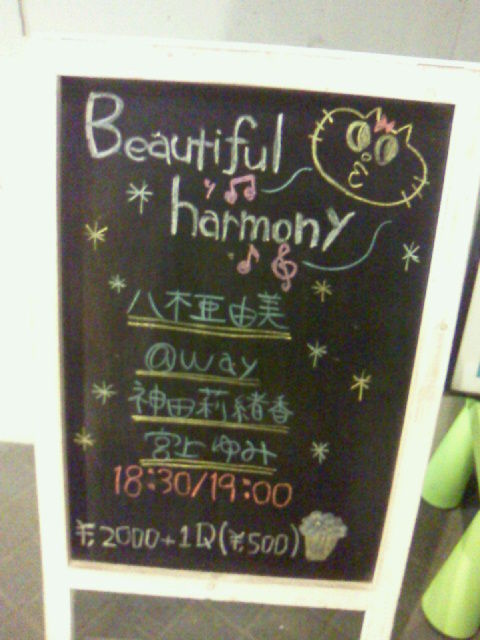 Beautiful
harmony
八木亜由美
@way
神田莉緒香
宮上ゆみ
18:30/19:00
¥2000+1D(¥500)